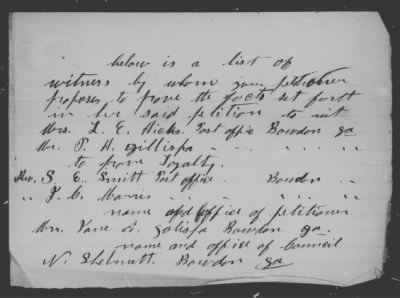 below is a list of
witness by whom your petitioner
proposes to prove the facts set forth
in her said petition to wit
Mrs. L. E. Hicks. Post offic Bowdon ga
Mr. P. H. Gillispa " " " " "
to prove Loyalty.
S. E. Smitt Post office. Bowdon "
" J. C. Morris " " " " "
name and office of petitioner
Mrs. Jane Bowdon ga.
name and office of Council
N. Shelnutt. Bowdon ga